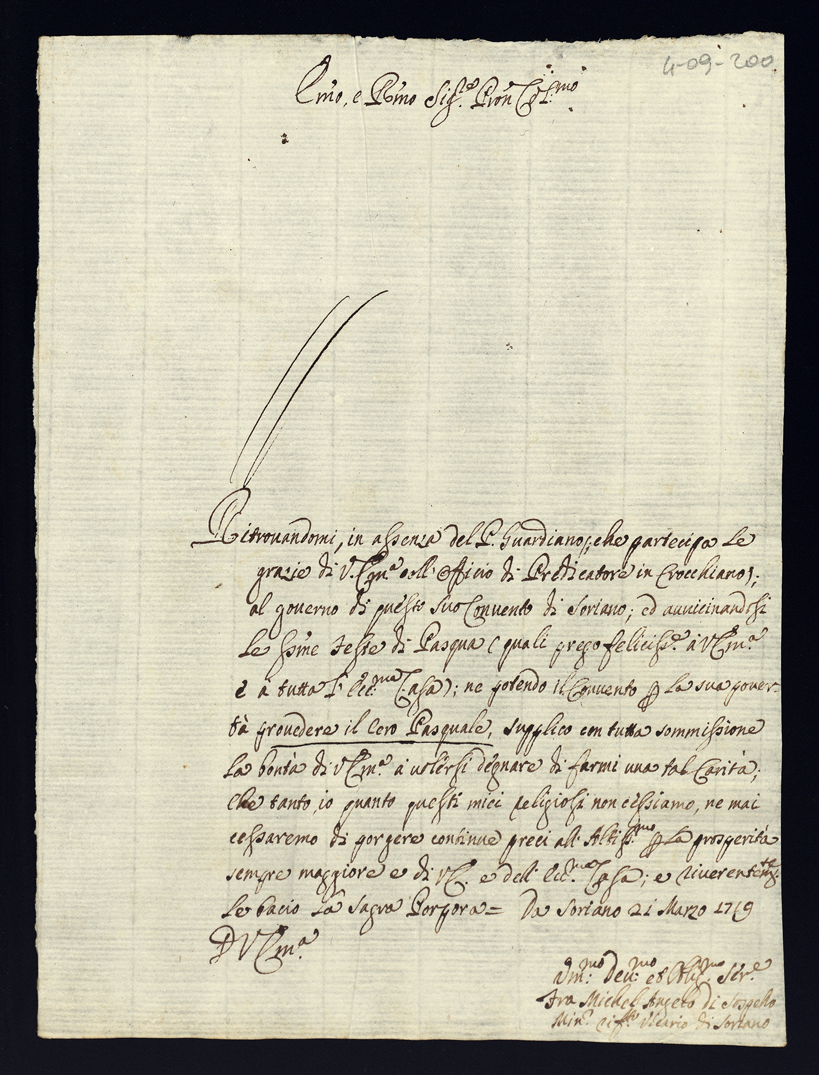 4-09-200
Emo, e Rmo Sig.re Pron Col.mo
Ritrouandomi, in assenza del P. Guardiano (che partecipa le
grazie di V. Em.a coll' officio di Predicatore in Crocchiano);
al governo di questo suo Convento di Soriano; ed auuicinandosi
le ssme Feste di Pasqua (quali prego feliciss.e à V Em.a
e à tutta l' Ecc.ma Casa); ne potendo il Convento p la sua pouer-
tà prouedere il Cero Pasquale, supplico con tutta sommissione
la bontà di V Em.a à uolersi degnare di farmi una tal Carità;
che tanto io quanto questi miei Religiosi non cessiamo, ne mai
cessaremo di porgere continue preci all' Altiss.mo p la prosperità
sempre maggiore e di V E. e dell' Ecc.ma Casa; e riuerentem.te
le bacio la Sagra Porpora = Da Soriano 21 Marzo 1719
D V Em.a
Um.mo Deu.mo et Obl.mo Ser.e
Fra Michel Angelo di
Min. Vicario di Soriano